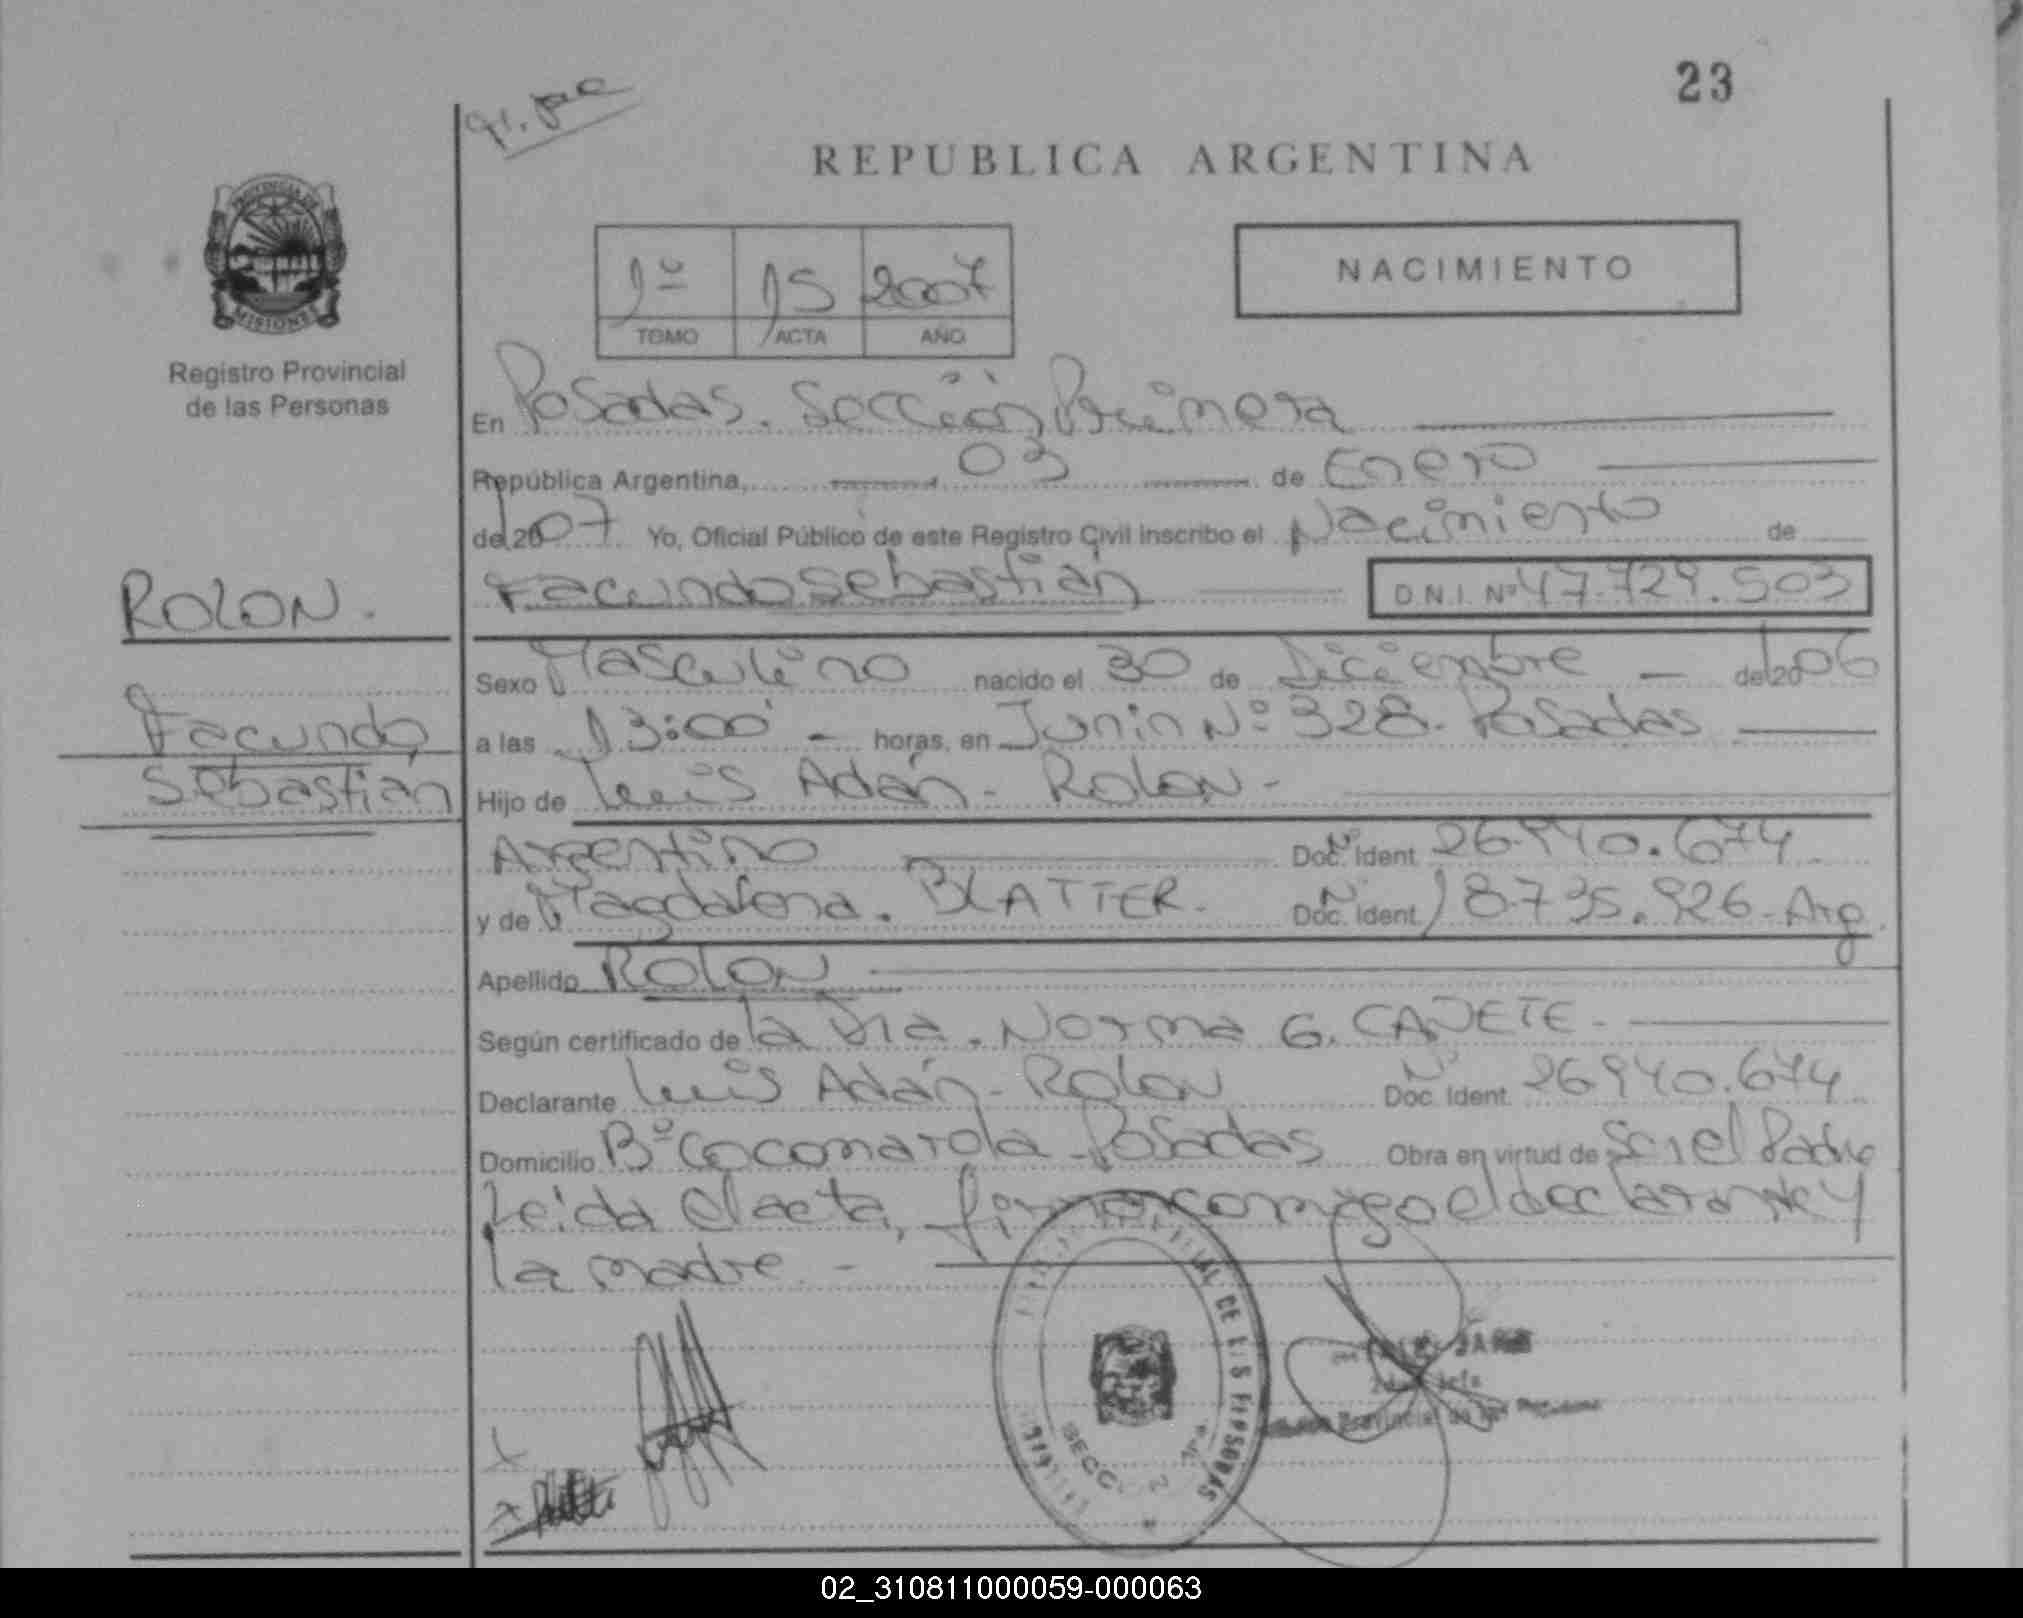 23
REPUBLICA ARGENTINA
PROVINCIA DE
MISIONES
Registro Provincial
de las Personas
NACIMIENTO
1º 15 2007
TOMO ACTA AÑO
En Posadas. Sección Primera
República Argentina, 03 de Enero
del 2007 Yo, Oficial Público de este Registro Civil inscribo el Nacimiento de
Facundo Sebastián D.N.I. Nº 47.729.503
ROLON.
Facundo
Sebastián
Sexo Masculino nacido el 30 de Diciembre - del 2006
a las 13:00 - horas, en Junin Nº 328. Posadas
Hijo de Luis Adán - Rolon -
Argentino Doc. Ident. Nº 26.940.674
y de Magdalena. BLATTER. Doc. Ident. Nº 18.735.926 - Arg.
Apellido ROLON
Según certificado de la Dra. Norma G. CAÑETE -
Declarante Luis Adán - Rolon Doc. Ident. Nº 26940.674
Domicilio Bº Cocomarola - Posadas Obra en virtud de Ser el Padre
Leida el acta, firman conmigo el declarante y
la madre. -
DE LAS PERSONAS
SECC.
Provincial de las Personas
02_310811000059-000063